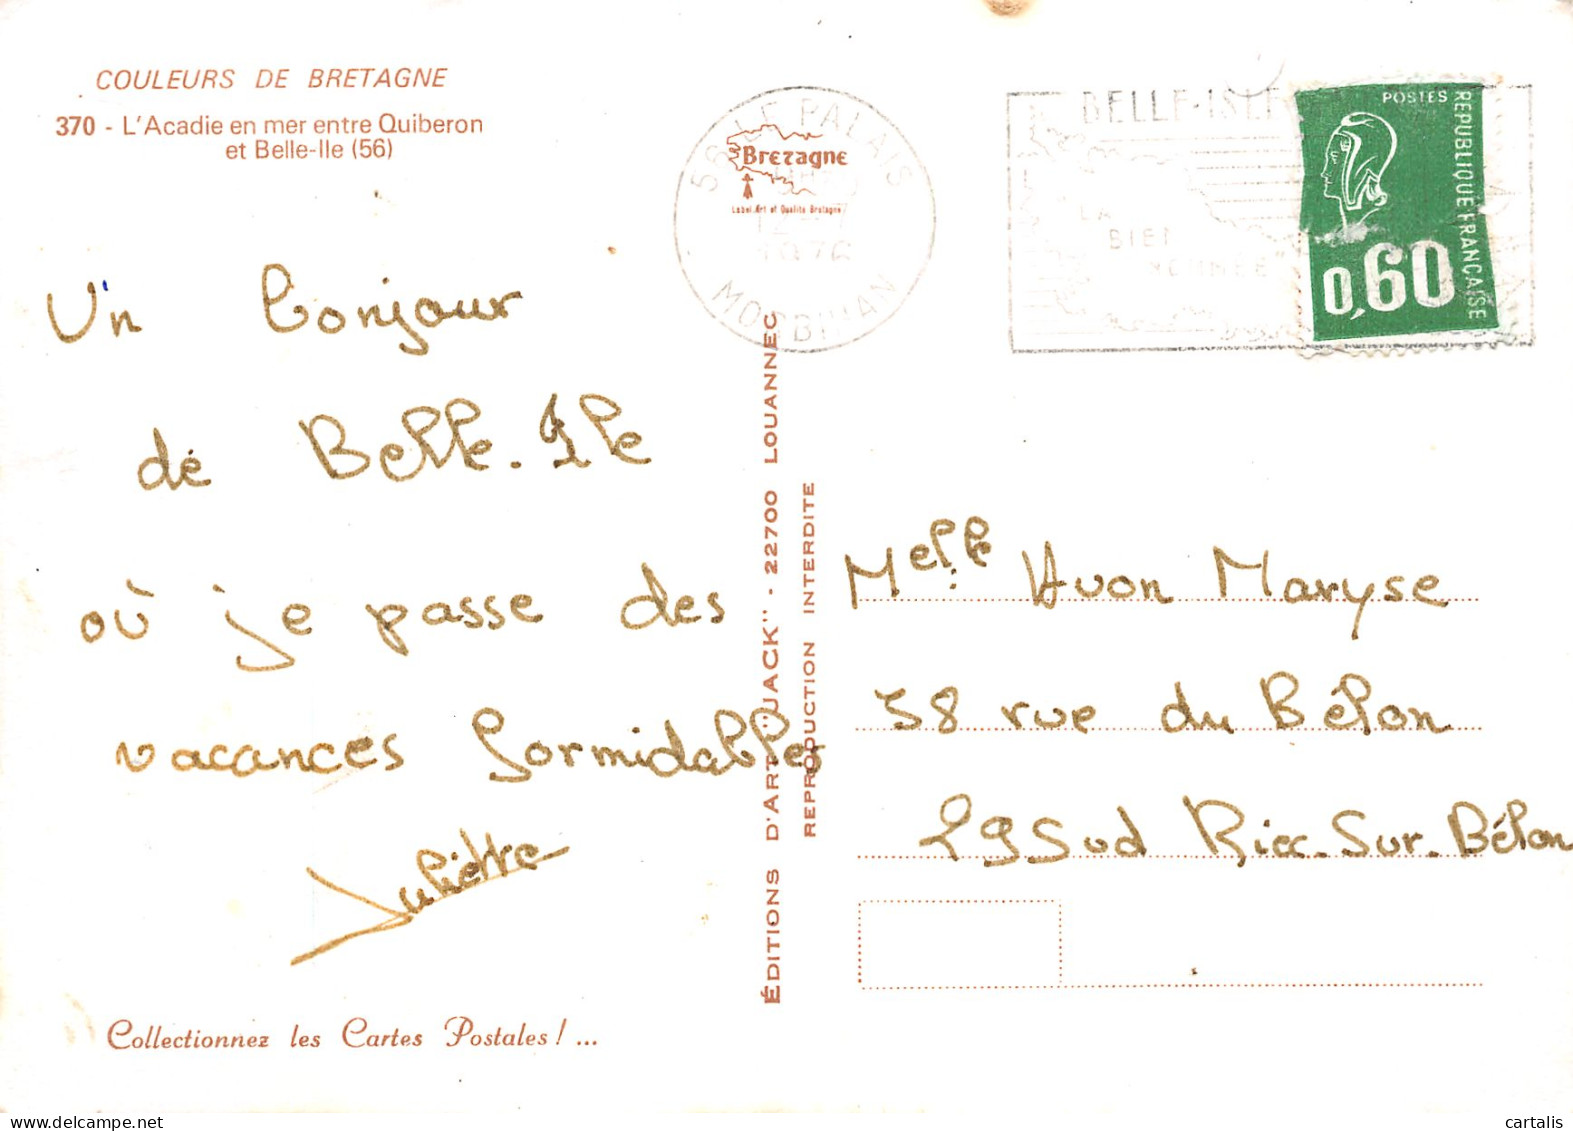 COULEURS DE BRETAGNE
370 - L'Acadie en mer entre Quiberon
et Belle-Ile (56)
Un bonjour
de Belle-Ile
où je passe des
vacances formidables
Juliette
Collectionnez les Cartes Postales ! ...
ÉDITIONS D'ART "JACK" - 22700 LOUANNEC
REPRODUCTION INTERDITE
56 LE PALAIS
1976
MORBIHAN
Bretagne
Label Art et Qualité Bretagne
BELLE-ISLE
"LA
BIEN
NOMMÉE"
POSTES
REPUBLIQUE FRANÇAISE
0,60
Melle Avon Maryse
38 rue du Bélon
29 Sud Riec-Sur-Bélon
cartalis
www.delcampe.net